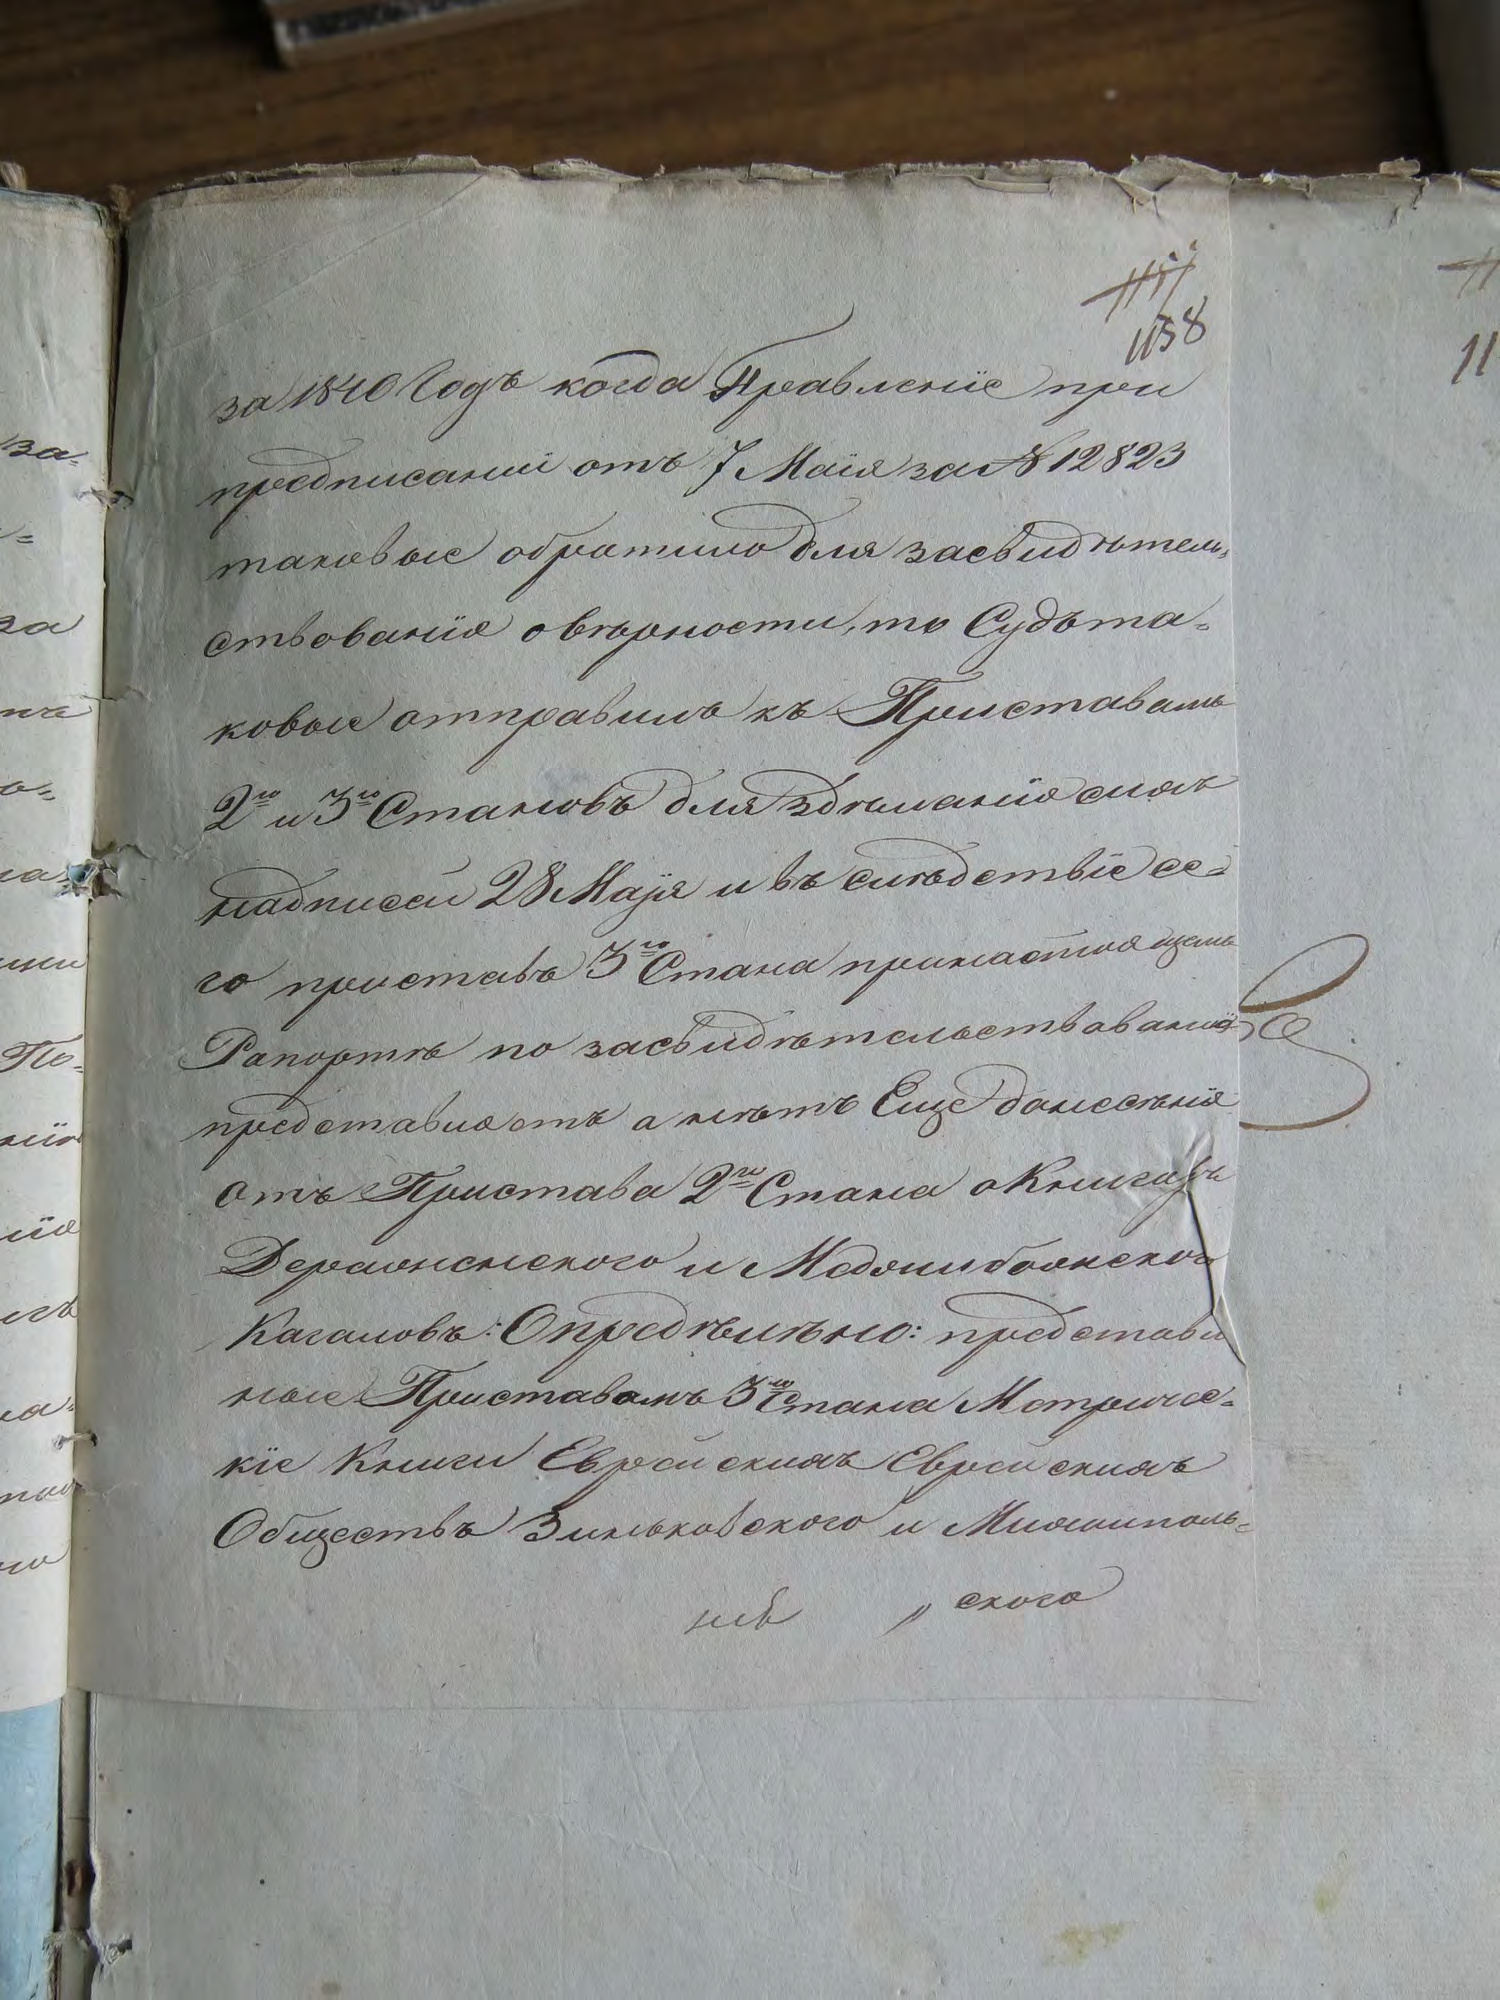 1157
1158
за 1840 Годъ когда Правленіе при
предписаніи отъ 7 Маія за № 12823
таковые обратило для засвидѣтель=
ствованія о вѣрности, то Судъ та=
ковые отправилъ къ Приставамъ
2го и 3го Становъ для здѣланія имъ
надписей 28 Маія и въ слѣдствіе се=
го приставъ 3го Стана при настоящемъ
Рапортѣ по засвидѣтельствованіи
представляетъ а нѣтъ Еще донесенія
отъ Пристава 2го Стана о Книгахъ
Деражненского и Меджибожского
Кагаловъ: Опредѣлено: представле
ные Приставомъ 3го Стана Метричес=
кіе Книги Еврейскихъ Еврейскихъ
Обществъ Зиньковского и Михамполь=
ского
за=
за
11